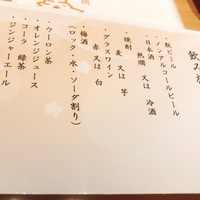 飲み放
・瓶ビール
・ノンアルコールビール
・日本酒 熱燗 又は 冷酒
・焼酎 麦 又は 芋
・グラスワイン 赤 又は 白
・梅酒
(ロック・水・ソーダ割り)
・ウーロン茶
・オレンジジュース
・コーラ 緑茶
・ジンジャーエール